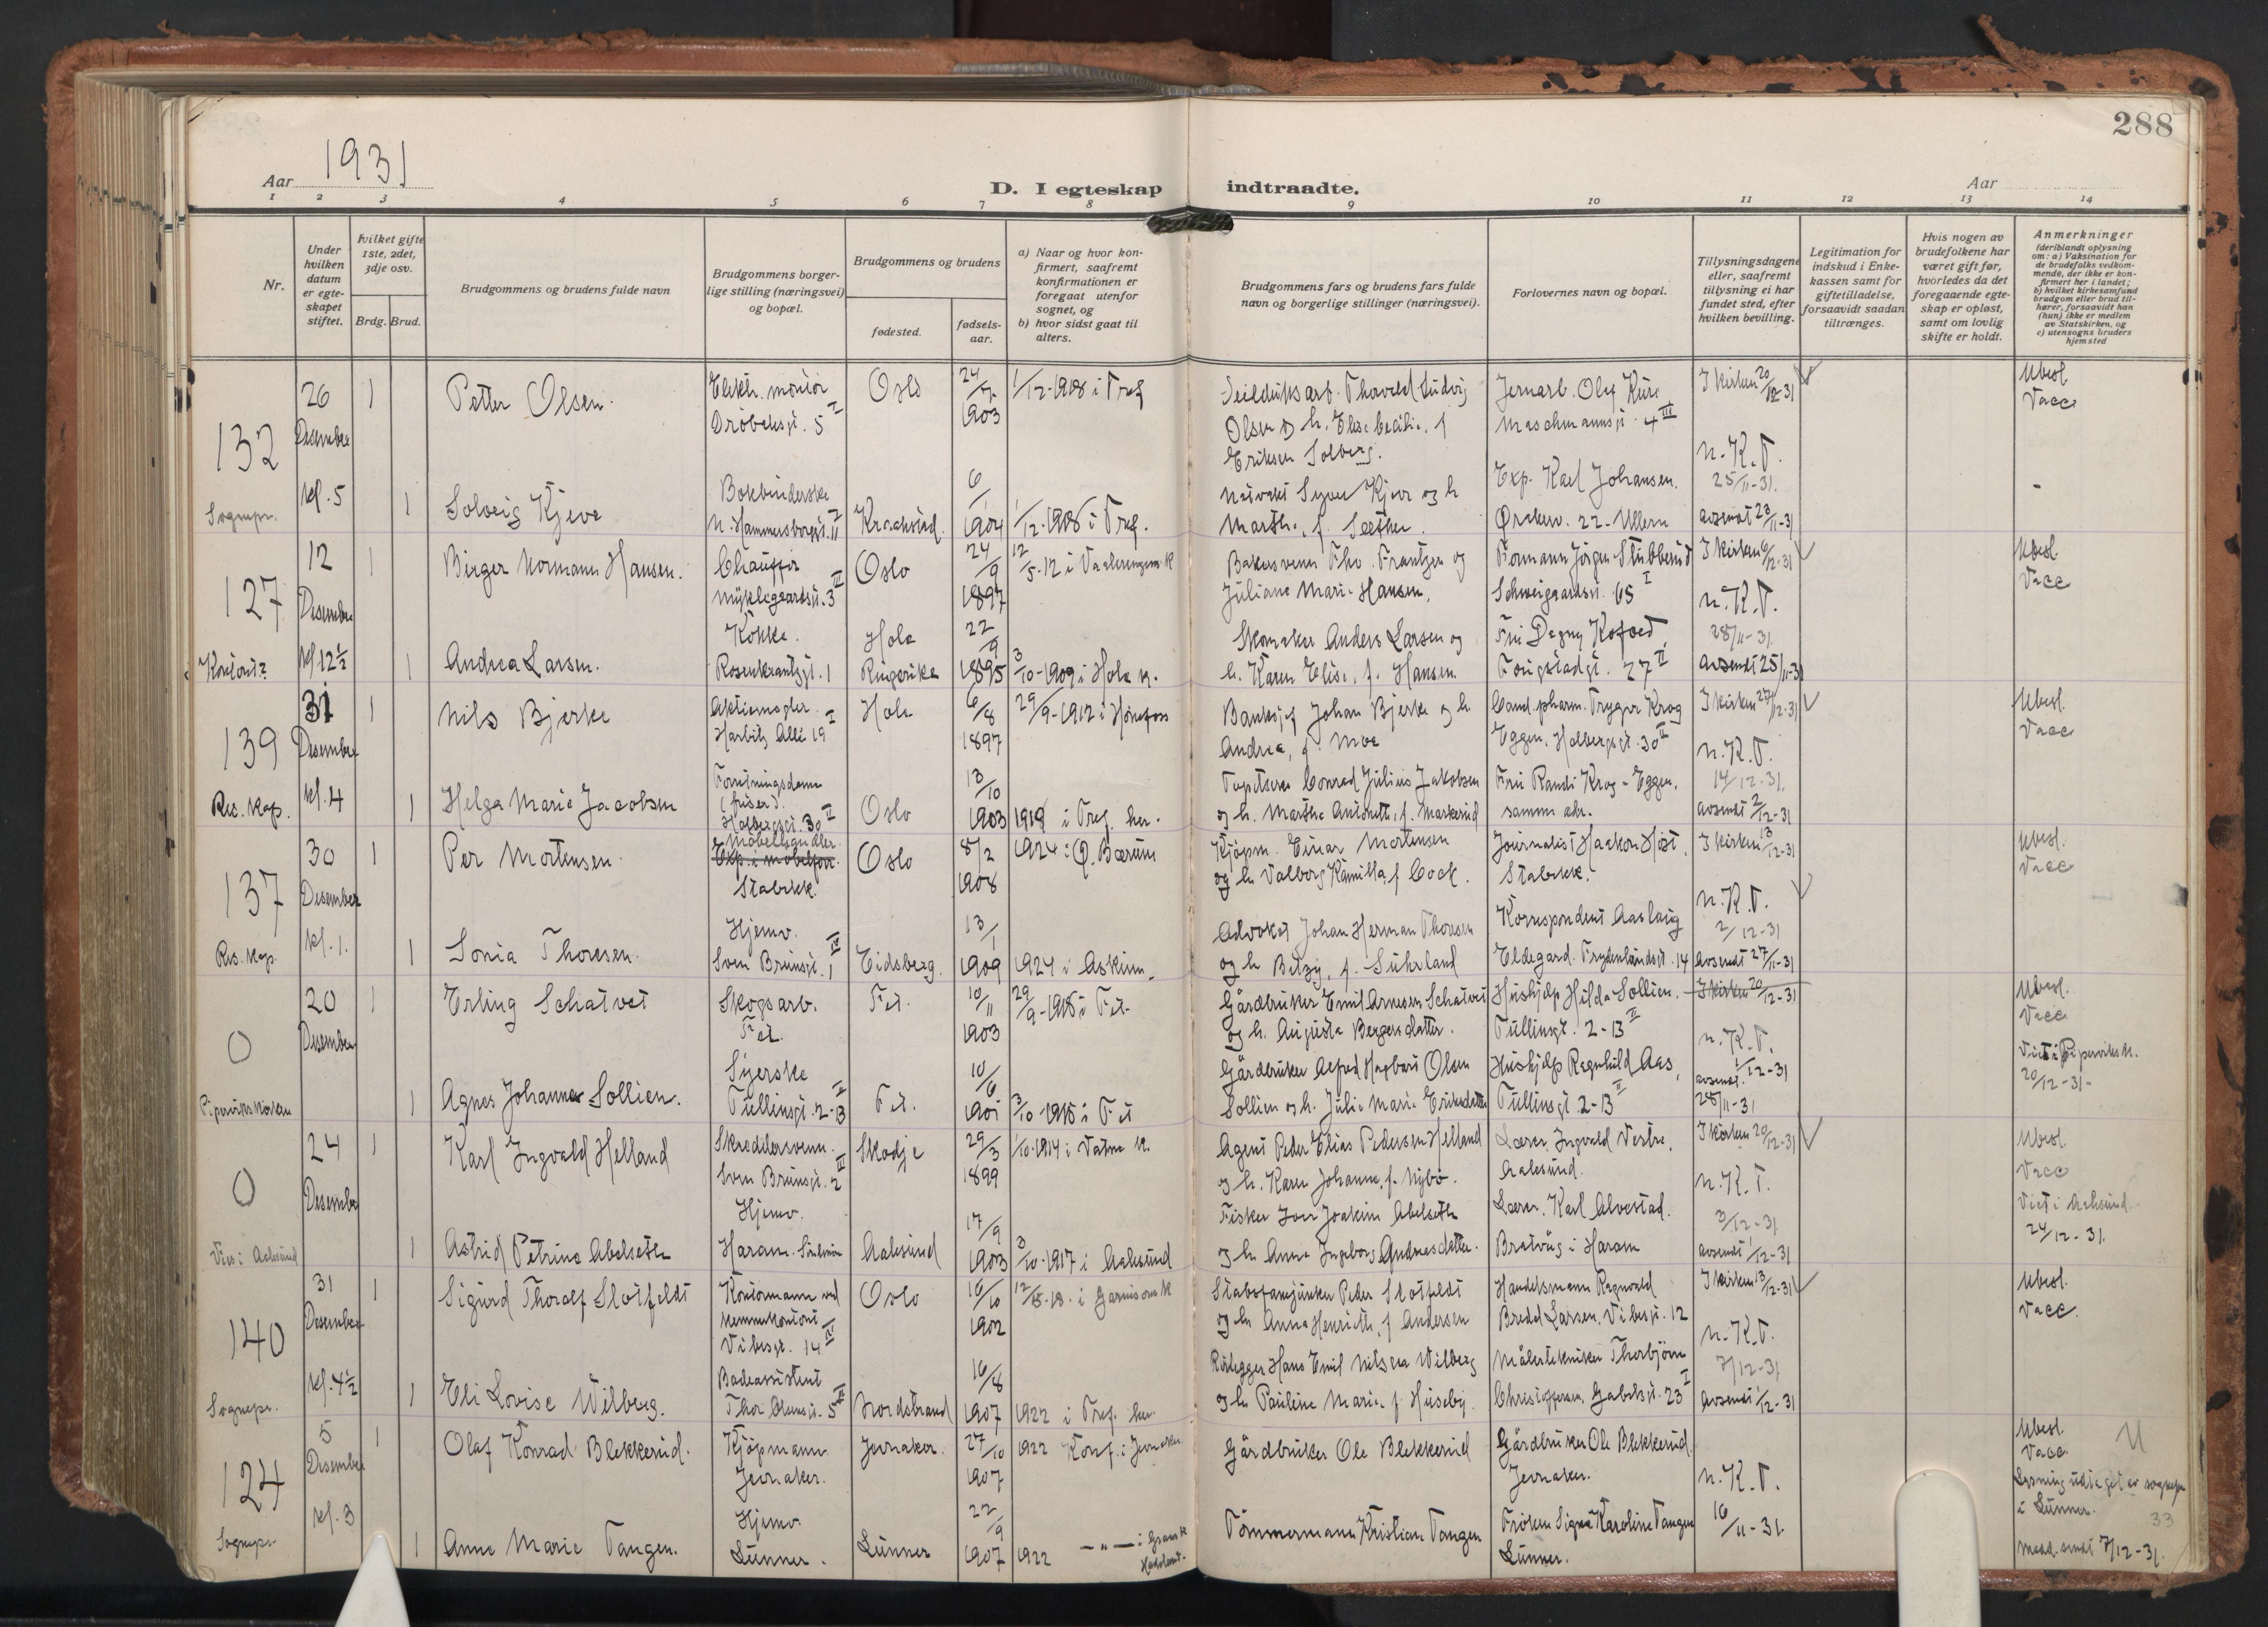 288
Aar 1931
D. I egteskap indtraadte.
Aar
1 2 3 4 5 6 7 8 9 10 11 12 13 14
Nr.
Under hvilken datum er egteskapet stiftet.
Hvilket gifte 1ste, 2det, 3dje osv.
Brdg. Brud.
Brudgommens og brudens fulde navn
Brudgommens borgerlige stilling (næringsvei) og bopæl.
Brudgommens og brudens
fødested.
fødselsaar.
a) Naar og hvor konfirmert, saafremt konfirmationen er foregaat utenfor sognet, og
b) hvor sidst gaat til alters.
Brudgommens fars og brudens fars fulde navn og borgerlige stillinger (næringsvei).
Forlovernes navn og bopæl.
Tillysningsdagene eller, saafremt tillysning ei har fundet sted, efter hvilken bevilling.
Legitimation for indskud i Enkekassen samt for giftetilladelse, forsaavidt saadan tiltrænges.
Hvis nogen av brudefolkene har været gift før, hvorledes da det foregaaende egteskap er opløst, samt om lovlig skifte er holdt.
Anmerkninger (deriblandt oplysning om: a) Vaksination for de brudefolks vedkommende, der ikke er konfirmert her i landet; b) hvilket kirkesamfund brudgom eller brud tilhører, forsaavidt han (hun) ikke er medlem av Statskirken, og c) utensogns bruders hjemsted
132
26 Desember kl. 5
Sognepr.
1 Petter Olsen. Elektr. montør Drøbaksgt. 5 I Oslo 24/7 1903 1/12-1918 i Tref.
Thorvald Ludvig
Olsen og h. Else Cecilie, f
Eriksen Solberg.
Jernarb. Olaf Kure
Maschmannsgt. 4 III
I kirken 20/12-31
Ubesl.
Vacc
N.K.T.
25/11-31.
avsendt 23/11-31
1 Solveig Kjeve Bokbinderske N. Hammersborggt. 11 Kraakstad. 6/1 1904 1/12-1918 i Tref.
h
Marthe, f. Sæther.
Exp. Karl Johansen.
22 - Ullern
127
12 Desember kl 12 ½
1 Birger Normann Hansen. Chauffør Myklegaardsgt. 3 III Oslo 24/9 1897 12/5-12 i Vaalerengens K
Bakersvenn Tho. Frantzen og
Juliane Marie Hansen.
Formann Jørgen Stubberud
Schweigaardsgt. 65 I
I kirken 6/12-31
Ubesl.
Vacc
N.K.T.
28/11-31.
avsendt 25/11-31
1 Andrea Larsen. Kokke. Rosenkrantzgt. 1 Hole Ringerike 22/9 1895 3/10-1909 i Hole K.
Skomaker Anders Larsen og
h. Karen Elise, f. Hansen.
Fru Dagny Kofoed,
77 II
139
31 Desember kl. 4
Res. Kap.
1 Nils Bjerke Aktiemegler. Harbitz Allé 19 I Hole 6/8 1897 29/9-1912 i Hønefoss
Banksjef Johan Bjerke og h
Andrea, f. Moe
Cand. pharm. Trygve Krog
Eggen, Holbergsgt. 30 II
I kirken 27/12-31
Ubesl.
Vacc
N.K.T.
14/12-31.
avsendt 2/12-31
1 Helga Marie Jacobsen Forretningsdame (frisør). Holbergsgt. 30 II Oslo 13/10 1903 1919 i Tref. her.
Tapetserer Conrad Julius Jakobsen
og h. Marthe Antonette, f. Markerud
Fru Randi Krog-Eggen,
samme adr.
137
30 Desember kl. 1.
Res. Kap.
1 Per Mortensen. Møbelhandler Exp. i møbelforr. Stabekk. Oslo 8/2 1908 1924 i Ø. Bærum
Kjøpm. Einar Mortensen
og h Valborg Kamilla, f Cock.
Journalist Haakon Høst,
Stabekk.
I kirken 13/12-31
Ubesl.
Vacc
N.K.T.
2/12-31
avsendt 27/11-31
1 Sonia Thoresen. Hjemv. Sven Brunsgt. 1 IV Eidsberg. 13/1 1909 1924 i Askim.
Advokat Johan Herman Thoresen
og h Betzy, f. Suhrland
Korrespondent Aaslaug
Eldegard. Frydenlundsgt. 14
0
20 Desember
Pipervikskirken
1 Erling Schatvet Skogsarb. Fet. Fet. 10/11 1903 29/9-1918 i Fet.
Gårdbruker Emil Arnesen Schatvet
og h. Augusta Bergersdatter.
Hushjelp Hilda Sollien.
Tullinsgt. 2-B II
I kirken 20/12-31
Ubesl.
Vacc
N.K.T.
1/12-31
avsendt
28/11-31
Viet i Piperviks K.
20/12-31-
1 Agnes Johanne Sollien. Syerske Tullinsgt. 2-B II Fet. 10/6 1901 3/10-1915 i Fet
Gårdbruker Alfred Hagbart Olsen
Sollien og h. Julie Marie Eriksdatter
Hushjelp Ragnhild Aas,
Tullinsgt. 2-B II
0
24 Desember
Vies i Aalesund
1 Karl Ingvald Helland Skreddersvenn. Sven Brunsgt. 2 III Skodje 29/3 1899 1/10-1914 i Vatne K.
Agent Peder Elias Pedersen Helland
og h. Karen Johanne, f. Nybø.
Lærer, Ingvald Vestre,
Aalesund.
I kirken 20/12-31
Ubesl.
Vacc
N.K.T.
3/12-31
avsendt 1/12-31
Viet i Aalesund.
24/12-31.
1 Astrid Petrine Abelseth Hjemv. Haram. Sunnmøre Aalesund 17/9 1903 3/10-1917 i Aalesund
Fisker Iver Joakim Abelseth
og h Anna Ingeborg Andreasdatter.
Lærer. Karl Alvestad.
Bratvåg i Haram
140
31 Desember kl. 4 ½
Sognepr.
1 Sigurd Thoralf Slotfeldt Kontormann ved Kemnerkontoret Vibesgt. 14 IV Oslo 16/10 1902 i Garnisons K
Peder Slotfeldt
og h Anna Henriette, f Andersen
Handelsmann Ragnvald
Bredo Larsen. Vibesgt. 12
I kirken 13/12-31
Ubesl.
Vacc.
N.K.T.
7/12-31
avsendt 1/12-31
1 Eli Lovise Wilberg. Badeassistent Thor Olsensgt. 5 III Nordstrand 16/8 1907 1922 i Tref. her.
Rørlegger Hans Emil Nilsen Wilberg
og h Pauline Marie, f. Huseby.
Målertekniker Thorbjørn
Christoffersen. Gabelsgt. 23 I
124
5 Desember kl. 3
Sognepr.
1 Olaf Konrad Blekkerud. Kjøpmann Jevnaker. Jevnaker. 27/10 1907 1922 Konf. i Jevnaker
Gårdbruker Ole Blekkerud
Gårdbruker Ole Blekkerud
Jevnaker.
Ubesl.
Vacc
N.K.T.
16/11-31.
Lysning utstedt av sognepr
i Lunner.
33
Medd. sendt 7/12-31.
1 Anne Marie Tangen. Hjemv. Lunner. Lunner 22/9 1907 1922 — " — i Gran K Hadeland.
Tømmermann Kristian Tangen
Frøken Signe Karoline Tangen
Lunner.